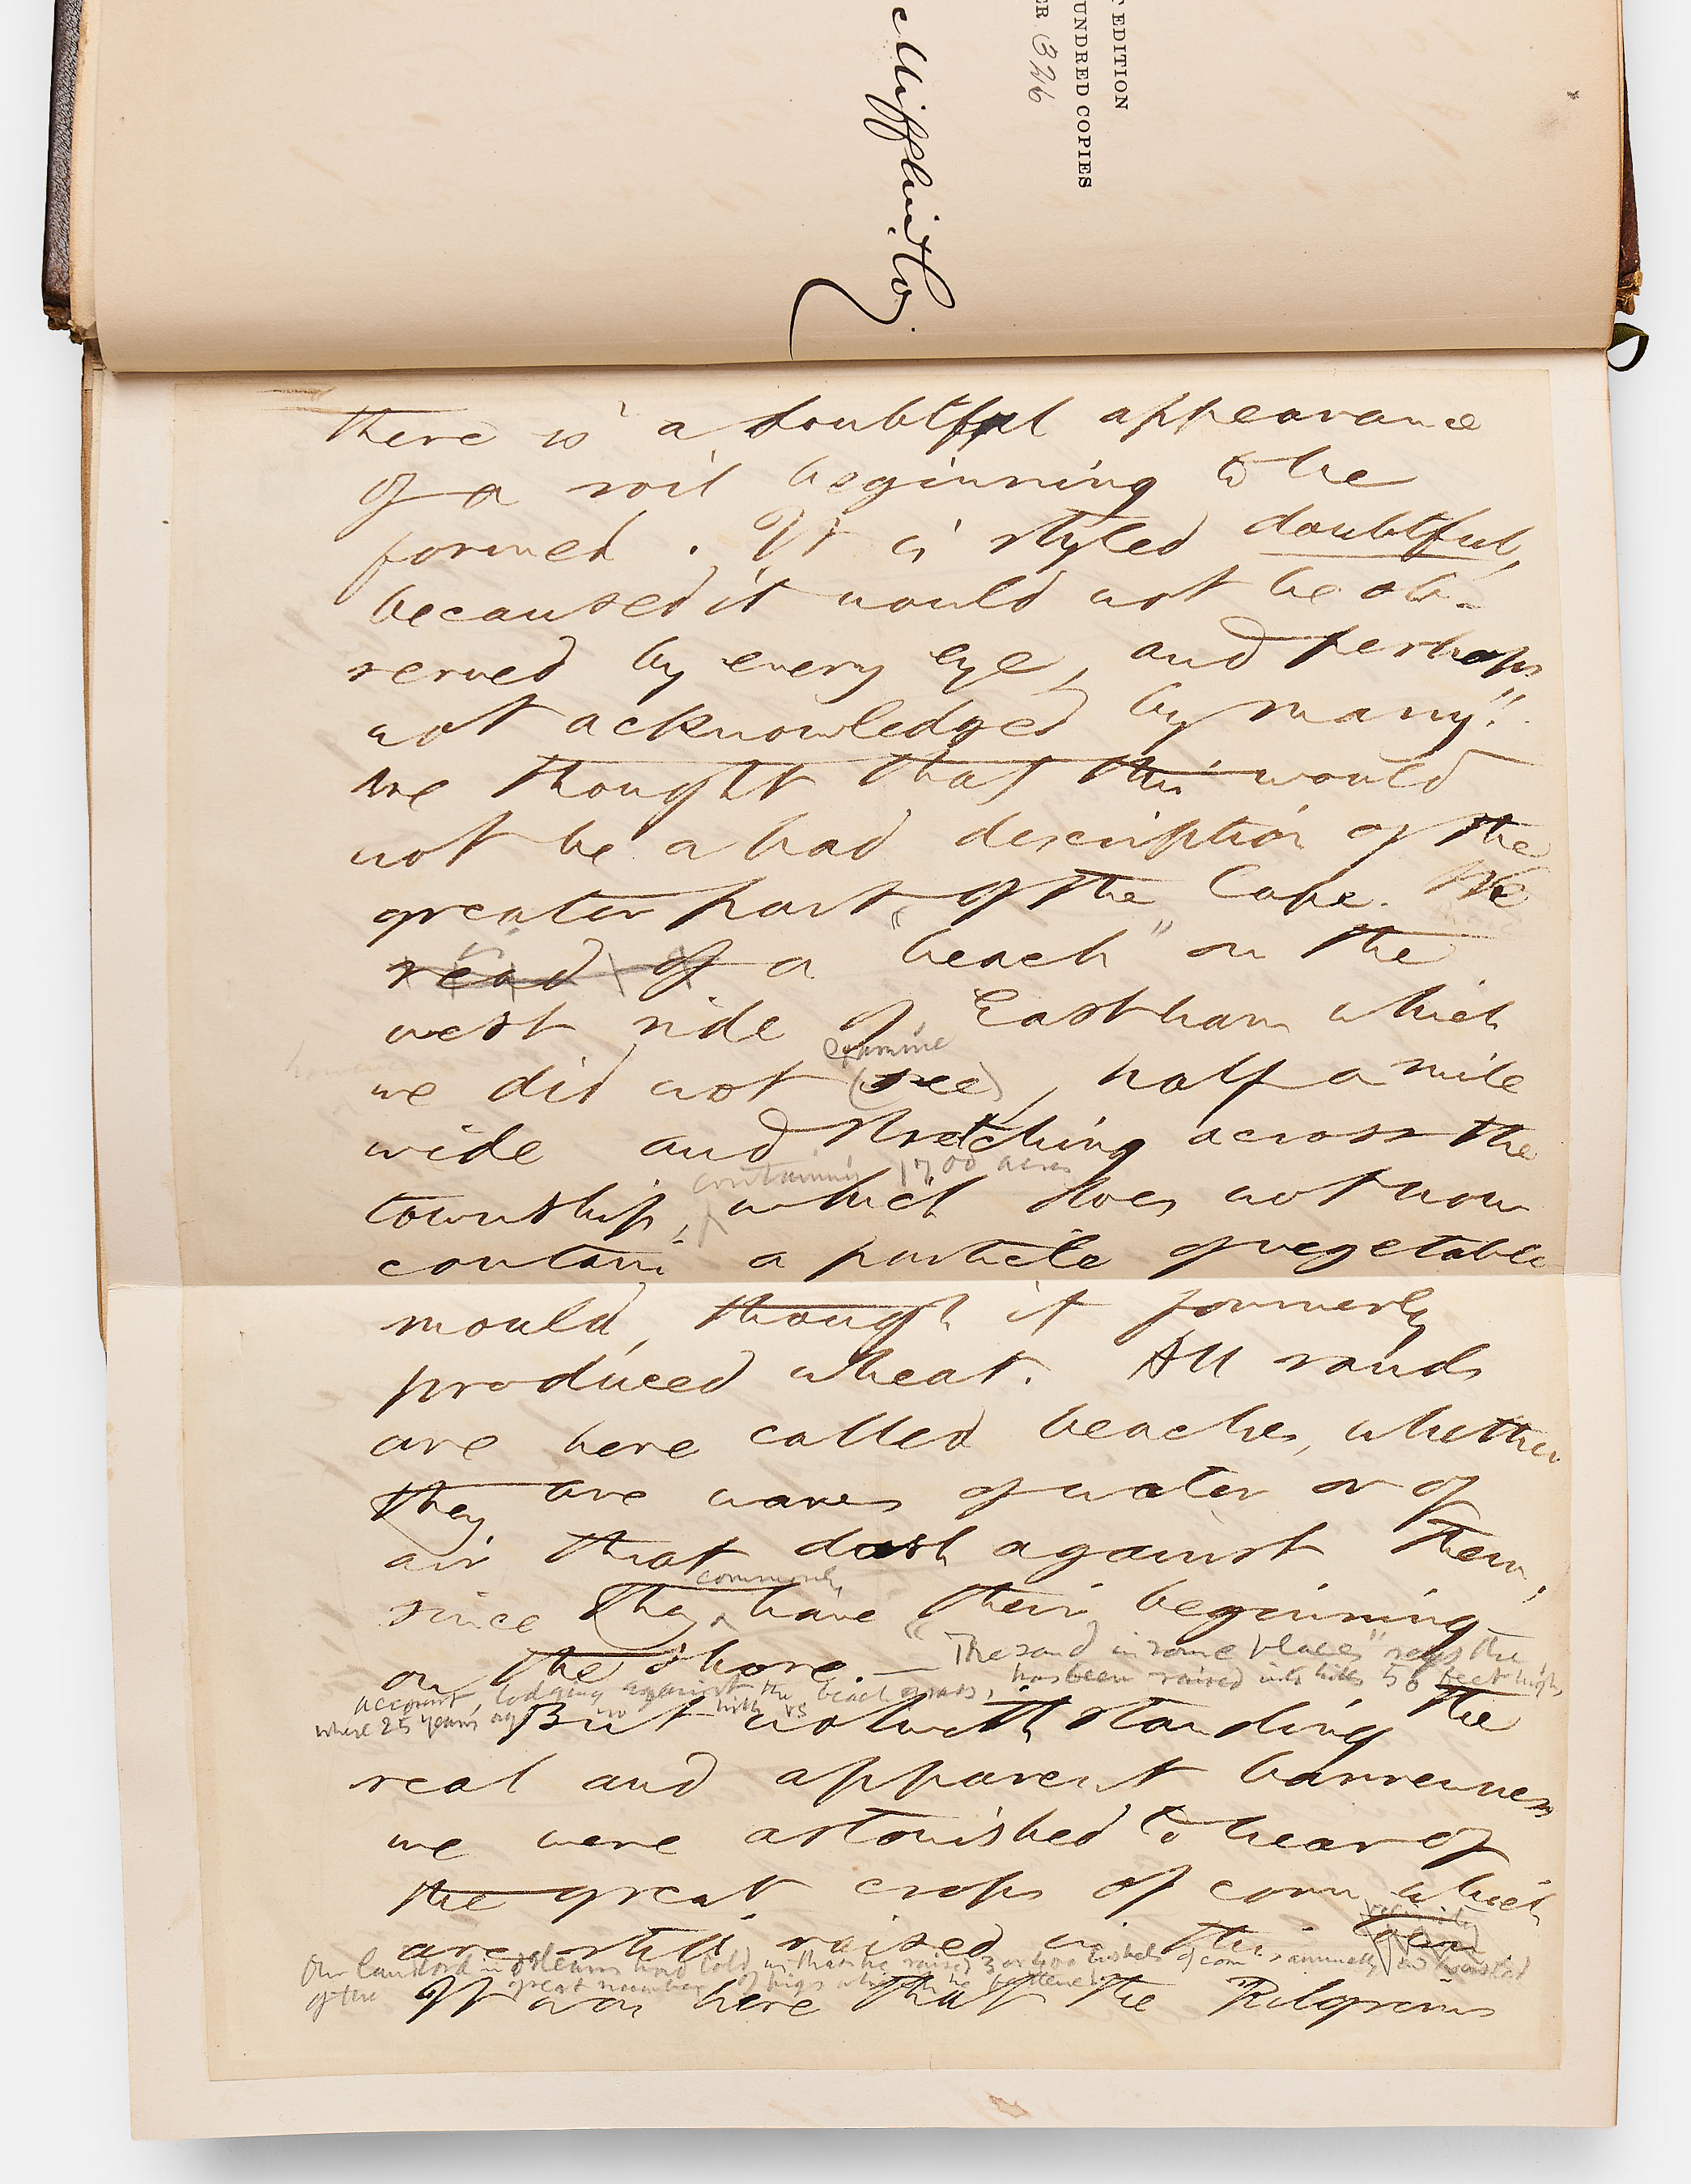 T EDITION
UNDRED COPIES
ER 326
Mifflin & Co.
there is a doubtful appearance
of a soil beginning to be
formed. It is styled doubtful,
because it would not be ob-
served by every eye, and perhaps
not acknowledged by many."
We thought that this would
not be a bad description of the
greater part of the Cape. We
read of a "beach" on the
west side of Eastham which
examine
we did not (see), half a mile
wide and stretching across the
containing 1700 acres
township, which does not now
contain a particle of vegetable
mould, though it formerly
produced wheat. All sands
are here called beaches, whether
they are waves of water or of
air that dash against them,
commonly
since they have their beginning
on the shore. — "The sand in some places" says the
account, lodging against the beach grass, has been raised into hills 50 feet high,
where 25 years ago no hills
But notwithstanding the
real and apparent barrenness
we were astonished to hear of
the great crops of corn which
vicinity
are still raised in this
Our landlord in Orleans had told us that he raised 3 or 400 bushels of corn annually
of the great number of pigs which he
It was here that the Pilgrims